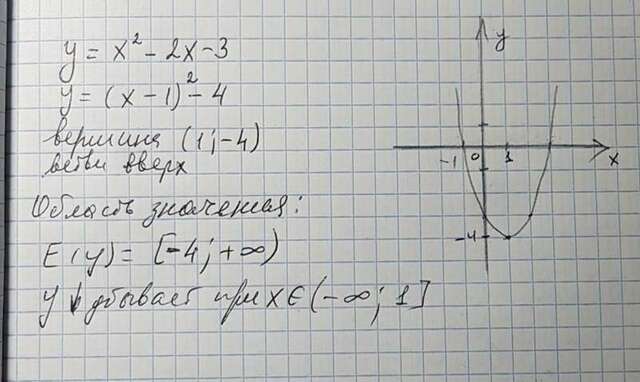 y = x² - 2x - 3
y = (x - 1)² - 4
вершина (1; -4)
ветви вверх
Область значения:
E(y) = [-4; +∞)
y ↓ убывает при x ∈ (-∞; 1]
y
-1 0 1 x
-4